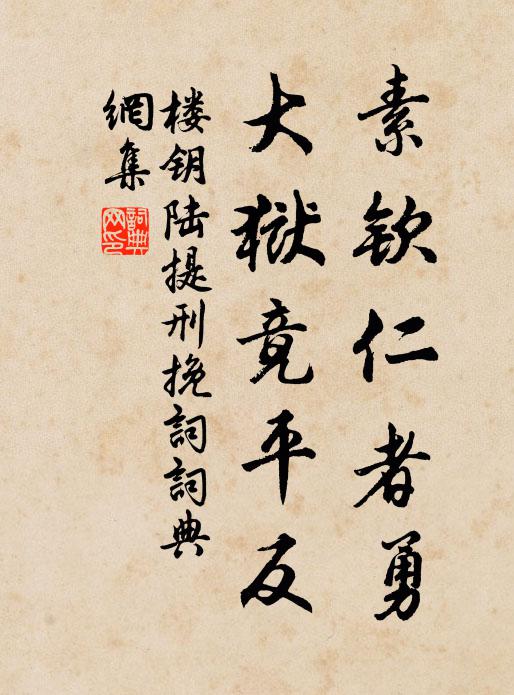 素钦仁者勇
大獄竟平反
楼钥陆提刑挽詞詞典
網集
詞典
网印